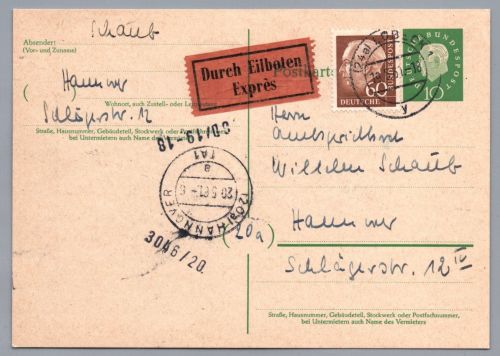 Absender:
(Vor- und Zuname)
Schaub
Hannover
Wohnort, auch Zustell- oder
Schlägerstr. 12
Straße, Hausnummer, Gebäudeteil, Stockwerk oder
bei Untermietern auch Name des
Durch Eilboten
Exprès
Postkarte
60
DEUTSCHE
DEUTSCHE BUNDESPOST
10
y
30/19-18
TA1
a
20.5.61-6
(20a) HANNOVER
3046/20.
Herrn
Wilhelm Schaub
(20a)
Hannover
Schlägerstr. 12 IV
Straße, Hausnummer, Gebäudeteil, Stockwerk oder Postfachnummer,
bei Untermietern auch Name des Vermieters